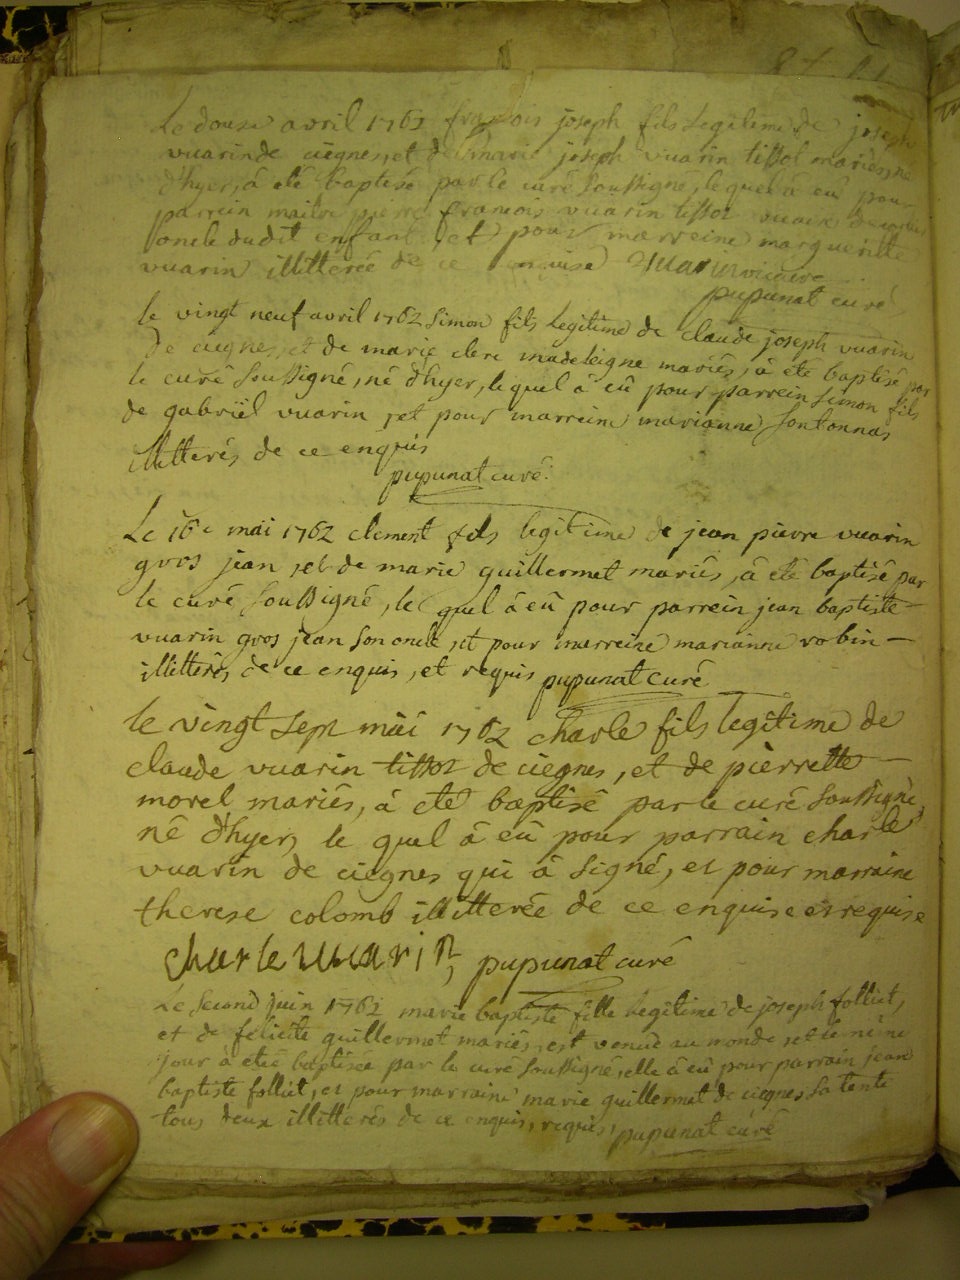 Le douse avril 1762 francois joseph fils Legitime de joseph
vuarin de ciegnes, et de marie joseph vuarin tissot mariés, né
d'hyer, à eté baptisé par le curé soussigné, le quel à eû pour
parrein maitre pierre francois vuarin tissot
oncle dudit enfant, et pour marreine margueritte
vuarin illitterée de ce enquise vuarin vicaire
pupunat curé
le vingt neuf avril 1762 simon fils legitime de claude joseph vuarin
De ciegnes, et de marie clere madeleigne mariés, à eté baptisé par
le curé soussigné, né d'hyer, lequel à eû pour parrein simon fils
de gabriël vuarin, et pour marreine marianne sontonnas
illitterés de ce enquis
pupunat curé.
Le 16e mai 1762 clement fils legitime de jean pierre vuarin
gros jean, et de marie guillermet mariés, à eté baptisé par
le curé soussigné, le quel à eû pour parrein jean baptiste
vuarin gros jean son oncle, et pour marreine marianne robin
illitterés de ce enquis, et requis pupunat curé
le vingt sept mai 1762 charle fils legitime de
claude vuarin tissot de ciegnes, et de pierrette
morel mariés, à eté baptisé par le curé soussigné,
né d'hyer, le quel à eû pour parrain charle
vuarin de ciegnes qui à signé, et pour marraine
therese colomb illitterée de ce enquise et requise
charle vuarin, pupunat curé
Le second juin 1762 marie baptiste fille legitime de joseph folliet,
et de felicité guillermet mariés, est venuë au monde, et le même
jour à eteé baptisée par le curé soussigné, elle à eû pour parrain jean
baptiste folliet, et pour marraine marie guillermet de ciegnes sa tente
tous deux illitterés de ce enquis, requis, pupunat curé